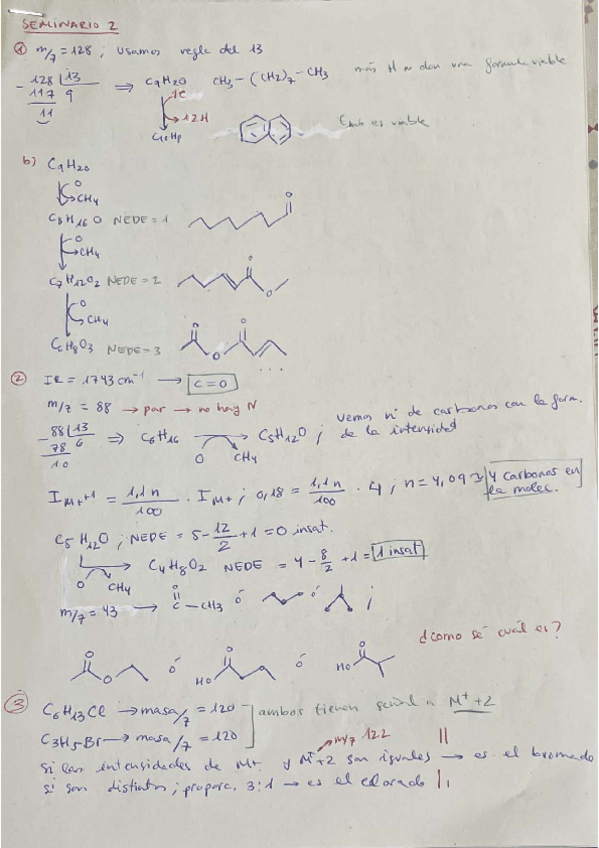 SEMINARIO 2
① m/z = 128 ; usamos regla del 13
- 128 | 13 ⇒ C9H20 CH3 - (CH2)7 - CH3 más H no dan una formula viable
117 9
11
1C
12H
C10H8 es viable
b) C9H20
O
CH4
C8H16O NEDE = 1
O
CH4
C7H12O2 NEDE = 2
O
CH4
C6H8O3 NEDE = 3
...
② IR = 1743 cm-1 → C=O
m/z = 88 → par → no hay N
- 88 | 13 ⇒ C6H16 → C5H12O ; vemos nº de carbonos con la form. de la intensidad
78 6
10
O CH4
I M+·+1 = 1,1 n / 100 · I M+ ; 0,18 = 1,1 n / 100 · 4 ; n = 4,09 ⇒ 4 carbonos en la molec.
C5H12O ; NEDE = 5 - 12/2 + 1 = 0 insat.
→ C4H8O2 NEDE = 4 - 8/2 + 1 = 1 insat
O CH4
m/z = 43 → C - CH3 ó ó ;
O
¿como sé cuál es?
O O ó HO O ó HO O
③ C6H13Cl → masa/z = 120
ambos tienen señal a M+ +2
C3H5Br → masa/z = 120
m/z 122
si las intensidades de M+ y M+ +2 son iguales → es el bromado
si son distintas ; proporc. 3:1 → es el clorado